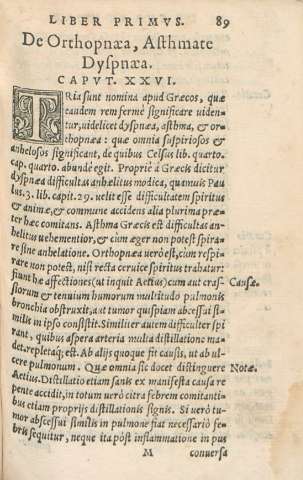 LIBER PRIMVS. 89
De Orthopnæa, Asthmate
Dyspnæa.
CAPVT. XXVI.
TRia sunt nomina apud Græcos, quæ
eandem rem fermè significare viden-
tur, videlicet dyspnæa, asthma, & or-
thopnæa: quæ omnia suspiriosos &
anhelosos significant, de quibus Celsus lib. quarto.
cap. quarto. abundè egit. Propriè à Græcis dicitur
dyspnæa difficultas anhælitus modica, quamuis Pau
lus. 3. lib. capit. 29. velit esse difficultatem spiritus
& animæ, & commune accidens alia plurima præ-
ter hæc comitans. Asthma Græcis est difficultas an-
helitus vehementior, & cum æger non potest spira-
re sine anhelatione. Orthopnæa verò est, cum respi-
rare non potest, nisi recta ceruice spiritus trahatur:
fiunt hæ affectiones (ut inquit Aetius) cum aut cras-
siorum & tenuium humorum multitudo pulmonis
bronchia obstruxit, aut tumor quispiam abscessui si-
milis in ipso consistit. Similiter autem difficulter spi
rant, quibus aspera arteria multa distillatione ma-
det, repletaq; est. Ab alijs quoque fit causis, ut ab ul-
cere pulmonum. Quæ omnia sic docet distinguere
Aetius. Distillatio etiam sanis ex manifesta causa re
pente accidit, in totum verò citra febrem comitanti-
bus etiam proprijs distillationis signis. Si verò tu-
mor abscessui similis in pulmone fiat necessariò fe-
bris sequitur, neque ita pòst inflammatione in pus
M conuersa
Causæ.
Notæ.